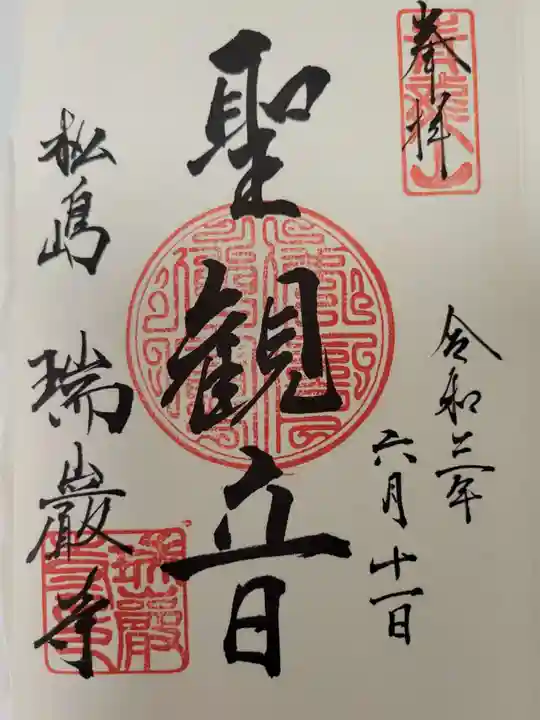 奉拝
令和二年
六月十一日
聖観音
松島 瑞巌寺